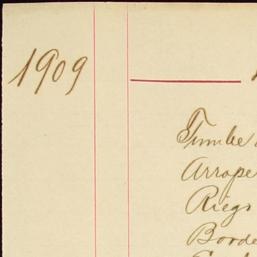 1909
Timbe
Arrope
Riego
Borde